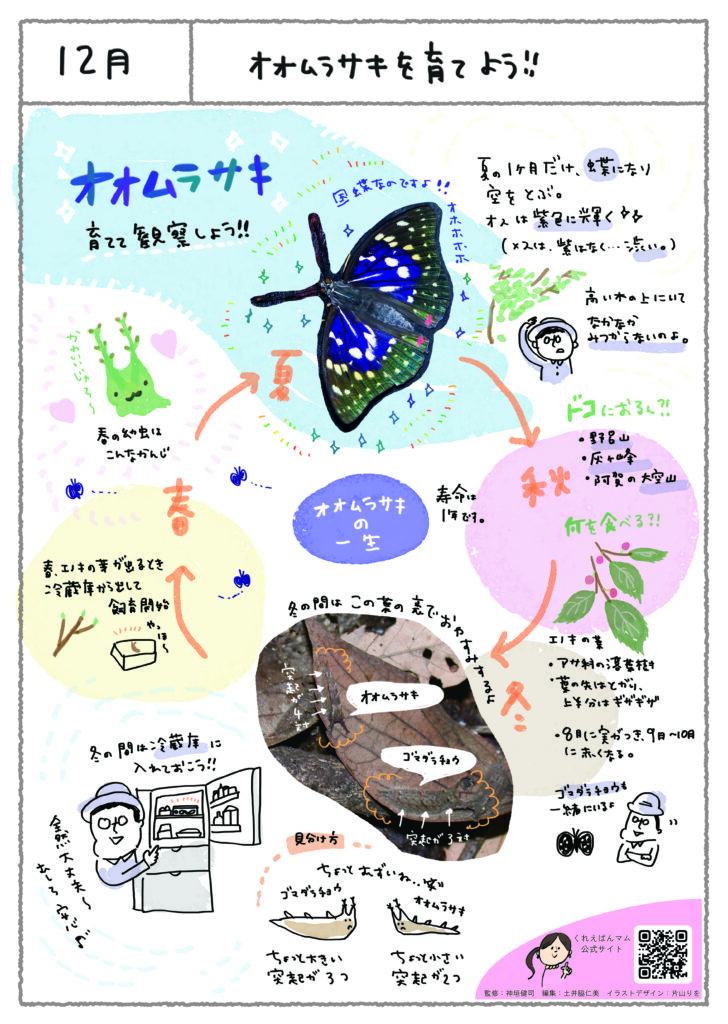 12月
オオムラサキを育てよう!!
オオムラサキ
育てて観察しよう!!
国蝶なのですよ!!
オホホホホ
夏の1ヶ月だけ、蝶になり
空をとぶ。
オスは紫色に輝く
(メスは、紫はなく…渋い。)
高い木の上にいて
なかなか
みつからないのよ。
夏
かわいいじゃろ〜
春の幼虫は
こんなかんじ
ドコにおるん?!
・野呂山
・灰ヶ峰
・阿賀の大空山
秋
春
オオムラサキ
の
一生
寿命は
1年です。
何を食べる?!
春、エノキの芽が出るとき
冷蔵庫から出して
飼育開始
やっほ〜
冬の間はこの葉の裏でおやすみするよ
冬
エノキの葉
・アサ科の落葉樹
・葉の先はとがり、
上半分はギザギザ
・8月に実がつき、9月〜10月
に赤くなる。
突起が4対
オオムラサキ
ゴマダラチョウ
突起が3対
冬の間は冷蔵庫に
入れておこう!!
全然大丈夫〜
むしろ安心
ゴマダラチョウも
一緒にいるよ
見分け方
ちょっとむずいね…
ゴマダラチョウ
オオムラサキ
ちょっと大きい
突起が3つ
ちょっと小さい
突起が2つ
くれえばんマム
公式サイト
監修:神垣健司 編集:土井脇仁美 イラストデザイン:片山りを